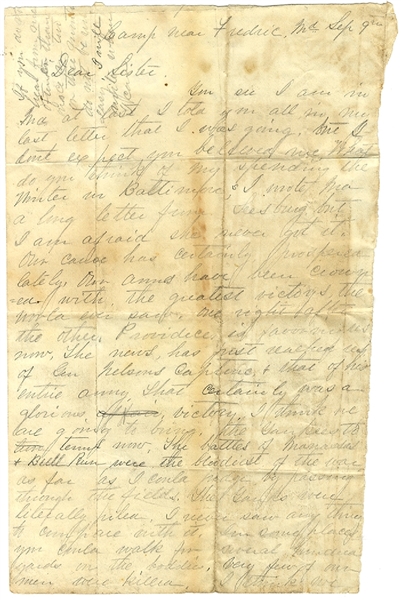 Camp near Fredric, Md Sep 9th
Dear Sister.
You see I am in
Md at last I told you all in my
last letter that I was going. and I
dont expect you believed me. What
do you think of my spending the
Winter in Baltimore, & I wrote Ma
a long letter from Leesburg but
I am afraid she never got it.
Our cause has certainly prospered
lately. Our arms have been crown
=ed with the greatest victorys the
world ever saw. one right after
the other. Providice is favoring us
now. The news, has just reached us
of Gen Nelsons capture, & that of his
entire army. that certainly was a
glorious victory. I think we
are going to bring the to
terms now. The battles of Manassas
& Bull Run were the bloodiest of the war
as far as I could judge by passing
through the fields. The Yankees were
literally piled. I never saw any thing
to compare with it. In some places
you could walk for several hundred
yards on the bodies. Very few of our
men were killed. I